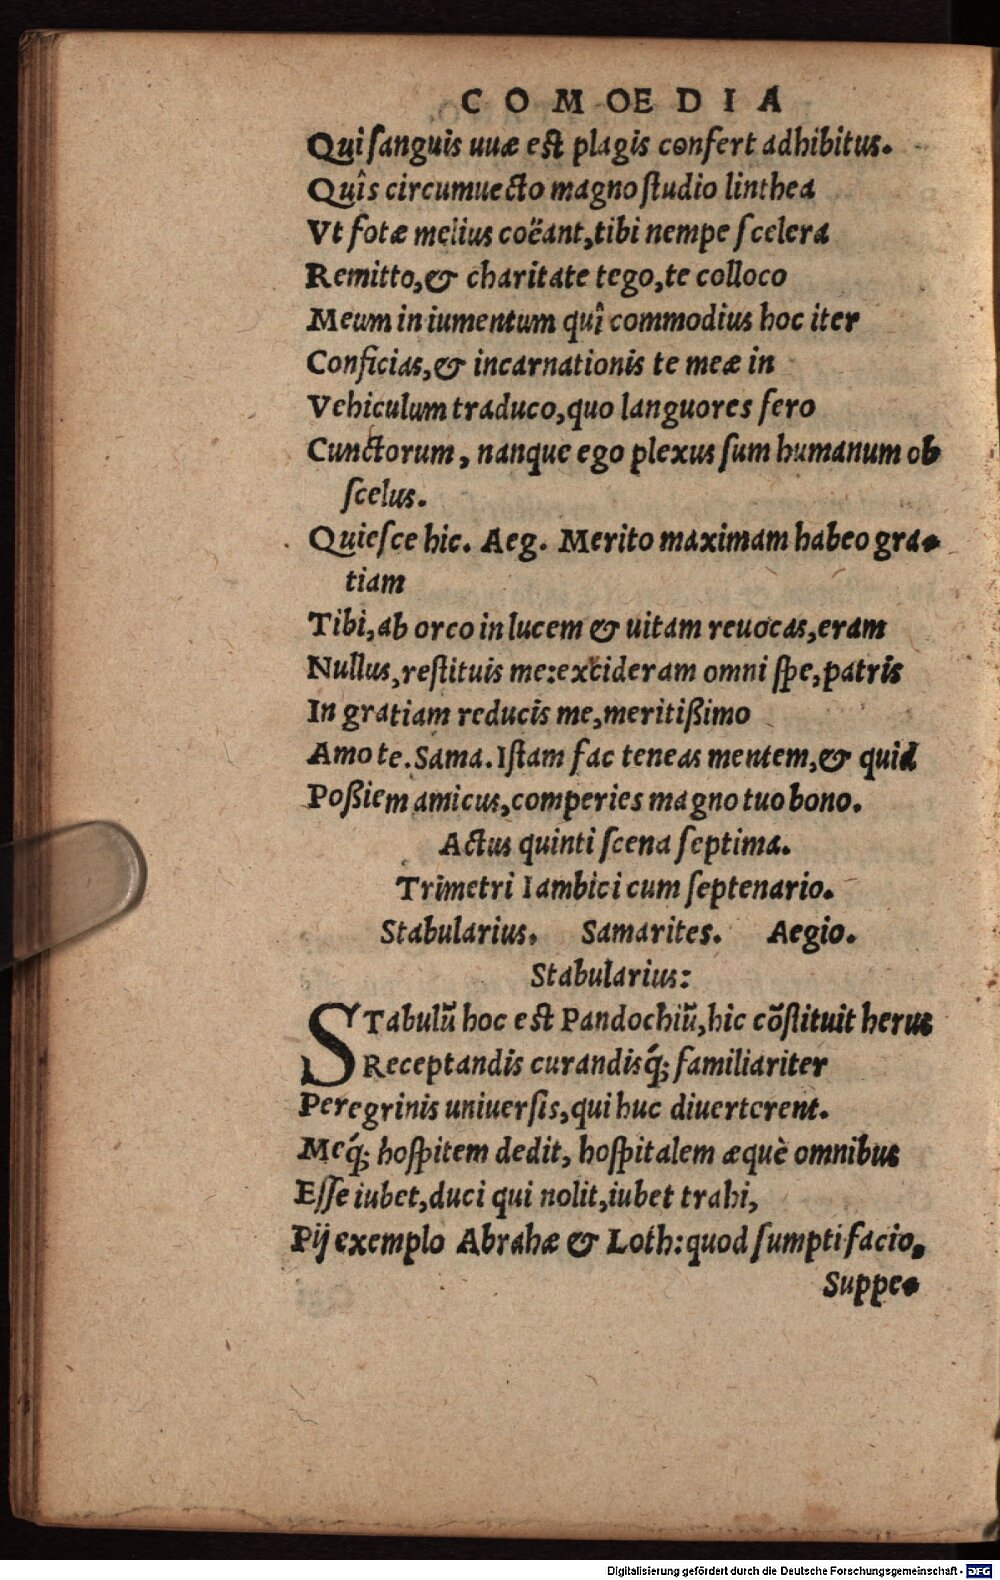 COMOEDIA
Qui sanguis uuæ est plagis confert adhibitus.
Quîs circumuecto magno studio linthea
Vt fotæ melius coëant, tibi nempe scelera
Remitto, & charitate tego, te colloco
Meum in iumentum quî commodius hoc iter
Conficias, & incarnationis te meæ in
Vehiculum traduco, quo languores fero
Cunctorum, nanque ego plexus sum humanum ob
scelus.
Quiesce hic. Aeg. Merito maximam habeo gra-
tiam
Tibi, ab orco in lucem & uitam reuocas, eram
Nullus, restituis me: excideram omni spe, patris
In gratiam reducis me, meritißimo
Amo te. Sama. Istam fac teneas mentem, & quid
Poßiem amicus, comperies magno tuo bono.
Actus quinti scena septima.
Trimetri Iambici cum septenario.
Stabularius. Samarites. Aegio.
Stabularius:
STabulũ hoc est Pandochiũ, hic cõstituit herus
Receptandis curandisq́; familiariter
Peregrinis uniuersis, qui huc diuerterent.
Meq́; hospitem dedit, hospitalem æquè omnibus
Esse iubet, duci qui nolit, iubet trahi,
Pij exemplo Abrahæ & Loth: quod sumpti facio,
Suppe-
Digitalisierung gefördert durch die Deutsche Forschungsgemeinschaft - DFG